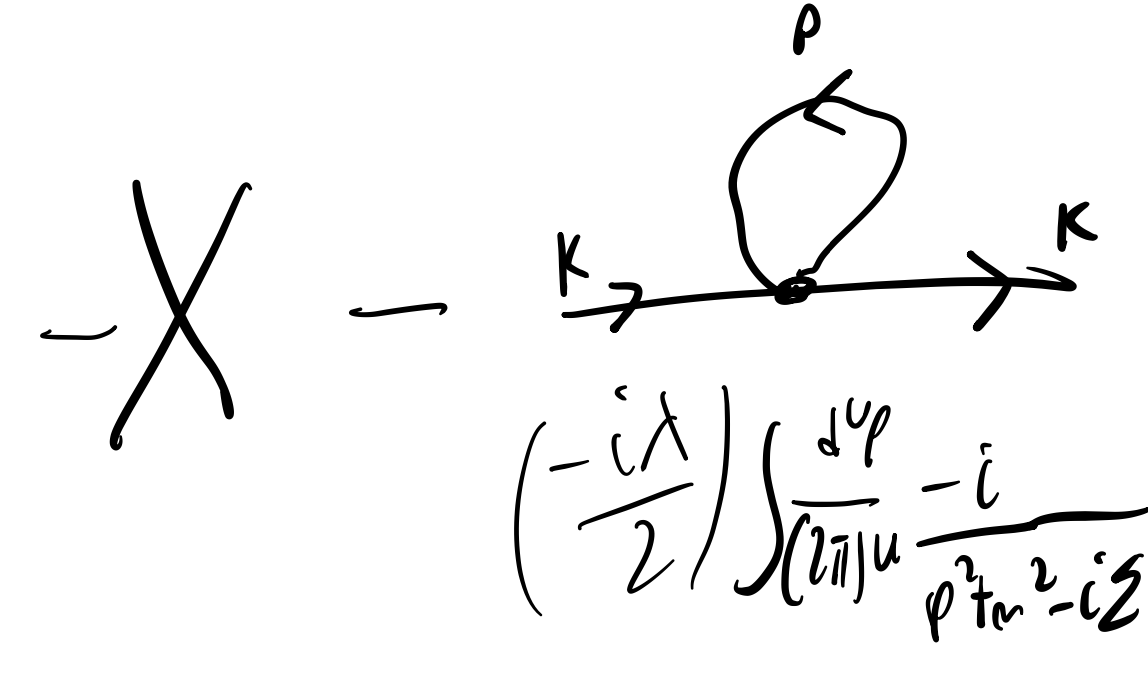 p
K K
(-iλ/2) ∫ d⁴p/(2π)⁴ -i/(p²+m²-iε)